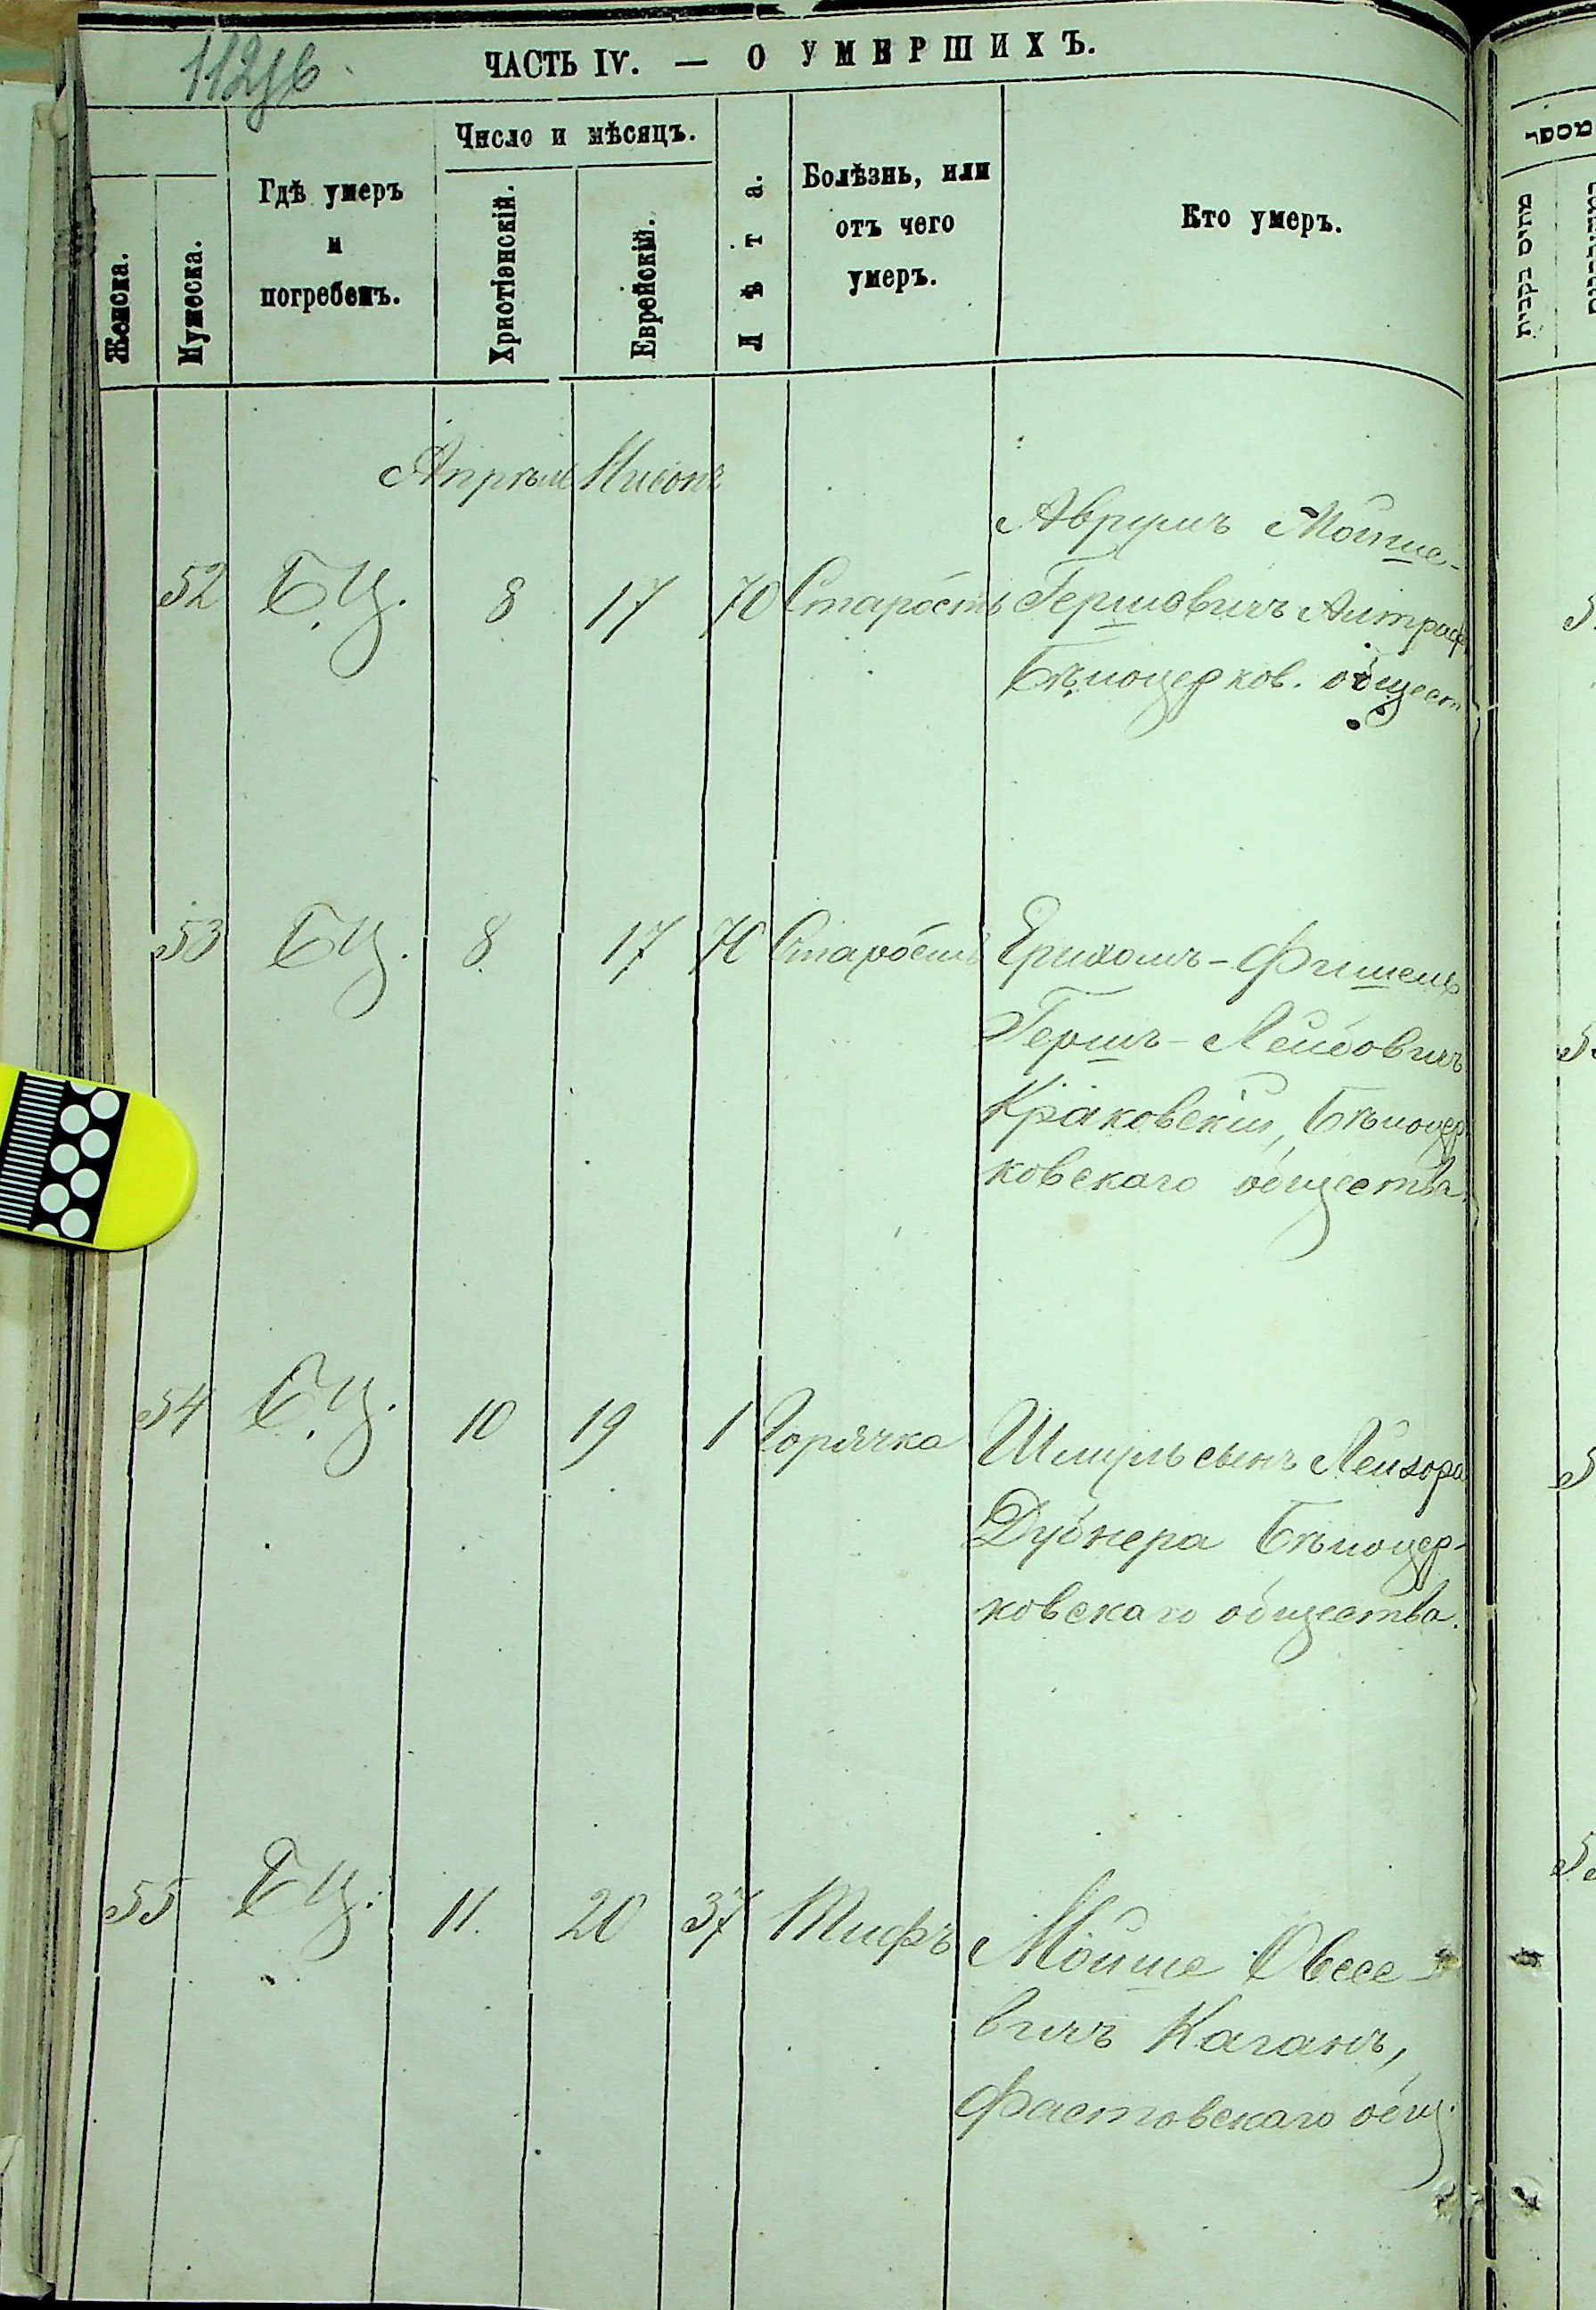 112
ЧАСТЬ IV. — О УМЕРШИХЪ.
Женска.
Мужеска.
Гдѣ умеръ
и
погребенъ.
Число и мѣсяцъ.
Христіенскій.
Еврейскій.
Лѣта.
Болѣзнь, или
отъ чего
умеръ.
Кто умеръ.
Апрѣль Нисонъ
52 БЦ. 8 17 70 Старость
Аврумъ Мойше-
Гершовичъ
Бѣлоцерков. общест
53 БЦ. 8. 17 70 Старость
Ерихомъ-Фишель
Гершъ-Лейбовичъ
Краковскій, Бѣлоцер
ковскаго общества.
54 Б.Ц. 10 19 1 Горячка
Шмуль сынъ Лейзора
Дубнера Бѣлоцер-
ковскаго общества.
55 БЦ. 11. 20 37 Тифъ
Мойше Овсее-
вичъ Каганъ,
Фастовскаго общ.
מתים בקבית